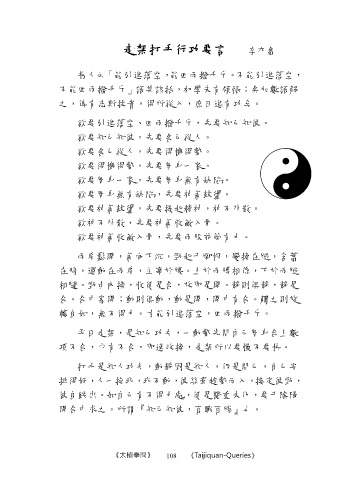 走架打手行功要言 李亦畬
昔人云『能引進落空,能四兩撥千斤。不能引進落空,
不能四兩撥千斤』語甚該括,初學未有領悟;予加數語解
之,俾有志斯技者,得所從入,庶日進有功矣。
欲要引進落空、四兩撥千斤,先要知己知彼。
欲要知己知彼,先要舍己從人。
欲要舍己從人,先要得機得勢。
欲要得機得勢,先要周身一家。
欲要周身一家,先要周身無有缺陷。
欲要周身無有缺陷,先要神氣鼓盪。
欲要神氣鼓盪,先要提起精神,神不外散。
欲要神不外散,先要神氣收斂入骨。
欲要神氣收斂入骨,先要兩股前節有力。
兩肩鬆開,氣向下沉,勁起於腳根,變換在腿,含蓄
在胸,運動在兩肩,主宰於腰。上於兩膊相係,下於兩腿
相隨。勁由內換,收便是合,放即是開。靜則俱靜,靜是
合,合中寓開;動則俱動,動是開,開中寓合。觸之則旋
轉自如,無不得力。才能引進落空,四兩撥千斤。
平日走架,是知己功夫,一動勢先問自己周身合上數
項不合,少有不合,即速改換,走架所以要慢不要快。
打手是知人功夫,動靜固是知人,仍是問己,自己安
排得好,人一挨我,
《太極拳問》 108 《Taijiquan-Queries》